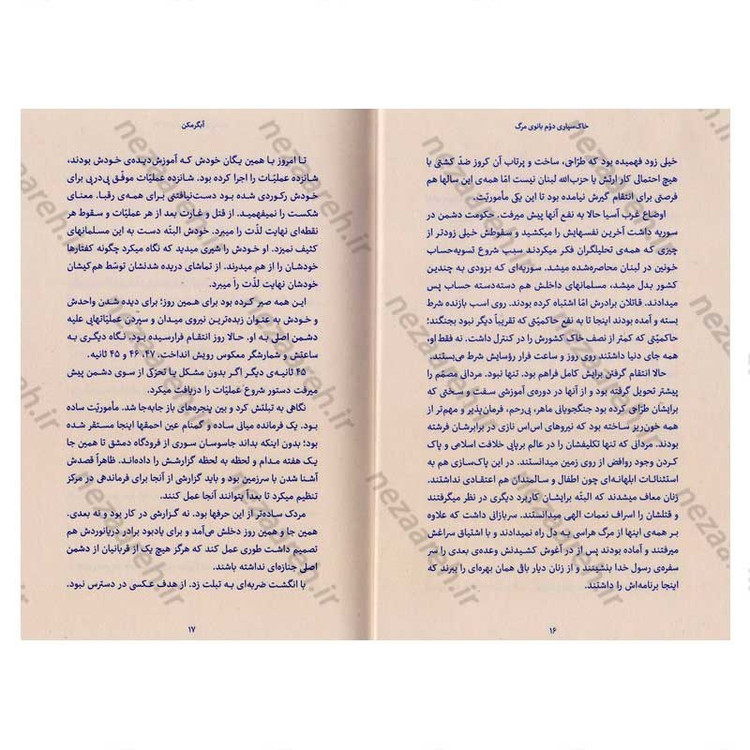 خاک‌سپاری دوّم بانوی مرگ
خیلی زود فهمیده بود که طرّاحی، ساخت و پرتاب آن کروز ضدّ کشتی با
هیچ احتمالی کار ارتش یا حزب‌الله لبنان نیست امّا همه‌ی این سالها هم
فرصتی برای انتقام گیرش نیامده بود تا این یکی مأموریّت.
اوضاع غرب آسیا حالا به نفع آنها پیش میرفت. حکومت دشمن در
سوریه داشت آخرین نفسهایش را میکشید و سقوطش خیلی زودتر از
چیزی که همه‌ی تحلیلگران فکر میکردند سبب شروع تسویه‌حساب
خونین در لبنان محاصره‌شده میشد. سوریه‌ای که بزودی به چندین
کشور بدل میشد، مسلمانهای داخلش هم دسته‌دسته حساب پس
میدادند. قاتلان برادرش امّا اشتباه کرده بودند. روی اسب بازنده شرط
بسته و آمده بودند اینجا تا به نفع حاکمیّتی که تقریباً دیگر نبود بجنگند؛
حاکمیّتی که کمتر از نصف خاک کشورش را در کنترل داشت. نه فقط او،
همه جای دنیا داشتند روی روز و ساعت فرار رؤسایش شرط می‌بستند.
حالا انتقام گرفتن برایش کامل فراهم بود. تنها نبود. مردانی مصمّم را
پیشتر تحویل گرفته بود و از آنها در دوره‌ی آموزشی سفت و سختی که
برایشان طرّاحی کرده بود جنگجویانی ماهر، بی‌رحم، فرمان‌پذیر و مهم‌تر از
همه خون‌ریز ساخته بود که نیروهای اس‌اس نازی در برابرشان فرشته
بودند. مردانی که تنها تکلیفشان را در عالم برپایی خلافت اسلامی و پاک
کردن وجود روافض از روی زمین میدانستند. در این پاک‌سازی هم به
استثنائات ابلهانه‌ای چون اطفال و سالمندان هم اعتقادی نداشتند.
زنان معاف میشدند که البتّه برایشان کاربرد دیگری در نظر میگرفتند
و قتلشان را اسراف نعمات الهی میدانستند. سربازانی داشت که علاوه
بر همه‌ی اینها از مرگ هراسی به دل راه نمیدادند و با اشتیاق سراغش
میرفتند و آماده بودند پس از در آغوش کشیدنش وعده‌ی بعدی را سر
سفره‌ی رسول خدا بنشینند و از زنان دیار باقی همان بهره‌ای را ببرند که
اینجا برنامه‌اش را داشتند.
۱۶
آبگرمکن
تا امروز با همین یگان خودش که آموزش‌دیده‌ی خودش بودند،
شانزده عملیّات را اجرا کرده بود. شانزده عملیّات موفّق پی‌درپی برای
خودش رکوردی شده بود دست‌نیافتنی برای همه‌ی رقبا. معنای
شکست را نمیفهمید. از قتل و غارت بعد از هر عملیّات و سقوط هر
نقطه‌ای نهایت لذّت را میبرد. او البتّه دست به این مسلمانهای
کثیف نمیزد. او خودش را شیری میدید که نگاه میکرد چگونه کفتارها
خودشان را از هم میدرند. از تماشای دریده شدنشان توسّط هم‌کیشان
خودشان نهایت لذّت را میبرد.
این همه صبر کرده بود برای همین روز؛ برای دیده شدن واحدش
و خودش به عنوان زبده‌ترین نیروی میدان و سپردن عملیّاتهایی علیه
دشمن اصلی به او. حالا روز انتقام فرارسیده بود. نگاه دیگری به
ساعتش و شمارشگر معکوس رویش انداخت. ۴۷، ۴۶ و ۴۵ ثانیه.
۴۵ ثانیه‌ی دیگر اگر بدون مشکل یا تحرّکی از سوی دشمن پیش
میرفت دستور شروع عملیّات را دریافت میکرد.
نگاهی به تبلتش کرد و بین پنجره‌های باز جابه‌جا شد. مأموریّت ساده
بود. یک فرمانده میانی ساده و گمنام عین احمقها اینجا مستقر شده
بود؛ بدون اینکه بداند جاسوسان سوری از فرودگاه دمشق تا همین جا
یک هفته مدام و لحظه به لحظه گزارشش را داده‌اند. ظاهراً قصدش
آشنا شدن با سرزمین بود و باید گزارشی از آنجا برای فرماندهی در مرکز
تنظیم میکرد تا بعداً بتوانند آنجا عمل کنند.
مردک ساده‌تر از این حرفها بود. نه گزارشی در کار بود و نه بعدی.
همین جا و همین روز دخلش می‌آمد و برای یادبود برادر دریانوردش هم
تصمیم داشت طوری عمل کند که هرگز هیچ یک از قربانیان از دشمن
اصلی جنازه‌ای نداشته باشند.
با انگشت ضربه‌ای به تبلت زد. از هدف عکسی در دسترس نبود.
۱۷
nezaareh.ir